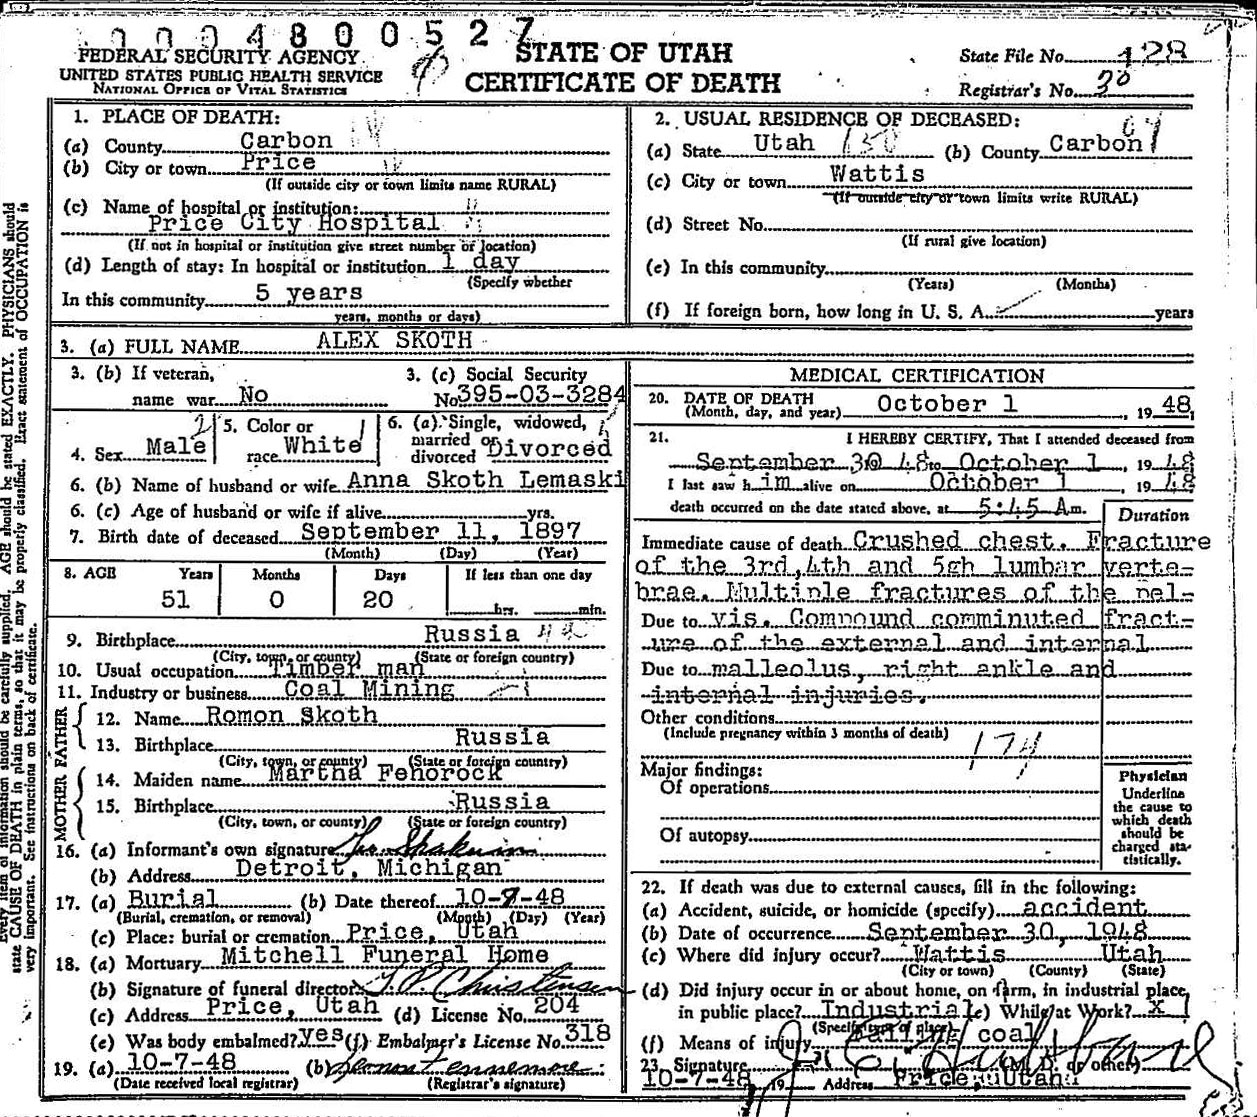 0004800527
FEDERAL SECURITY AGENCY
UNITED STATES PUBLIC HEALTH SERVICE
NATIONAL OFFICE OF VITAL STATISTICS
STATE OF UTAH
CERTIFICATE OF DEATH
State File No. 128
Registrar's No. 30
1. PLACE OF DEATH:
(a) County Carbon
(b) City or town Price
(If outside city or town limits name RURAL)
(c) Name of hospital or institution:
Price City Hospital
(If not in hospital or institution give street number or location)
(d) Length of stay: In hospital or institution 1 day
(Specify whether
In this community 5 years
years, months or days)
2. USUAL RESIDENCE OF DECEASED:
(a) State Utah 150 (b) County Carbon 04
(c) City or town Wattis
(If outside city or town limits write RURAL)
(d) Street No.
(If rural give location)
(e) In this community
(Years) (Months)
(f) If foreign born, how long in U. S. A. years
3. (a) FULL NAME ALEX SKOTH
3. (b) If veteran, name war No
3. (c) Social Security No. 395-03-3284
4. Sex Male 2
5. Color or race White 1
6. (a) Single, widowed, married or divorced Divorced
6. (b) Name of husband or wife Anna Skoth Lemaski
6. (c) Age of husband or wife if alive yrs.
7. Birth date of deceased September 11, 1897
(Month) (Day) (Year)
8. AGE Years Months Days If less than one day
51 0 20 hrs. min.
9. Birthplace Russia
(City, town, or county) (State or foreign country)
10. Usual occupation Timber man
11. Industry or business Coal Mining
FATHER
12. Name Romon Skoth
13. Birthplace Russia
(City, town, or county) (State or foreign country)
MOTHER
14. Maiden name Martha Fehorock
15. Birthplace Russia
(City, town, or county) (State or foreign country)
16. (a) Informant's own signature
(b) Address Detroit, Michigan
17. (a) Burial (b) Date thereof 10-7-48
(Burial, cremation, or removal) (Month) (Day) (Year)
(c) Place: burial or cremation Price, Utah
18. (a) Mortuary Mitchell Funeral Home
(b) Signature of funeral director Christensen
(c) Address Price, Utah (d) License No. 204
(e) Was body embalmed? yes (f) Embalmer's License No. 318
19. (a) 10-7-48 (b)
(Date received local registrar) (Registrar's signature)
MEDICAL CERTIFICATION
20. DATE OF DEATH
(Month, day, and year) October 1, 19 48
21. I HEREBY CERTIFY, That I attended deceased from
September 30 48 to October 1, 19 48
I last saw h im alive on October 1, 19 48
death occurred on the date stated above, at 5:45 A m.
Duration
Immediate cause of death Crushed chest. Fracture
of the 3rd,4th and 5gh lumbar verte-
brae. Multiple fractures of the pel-
Due to vis. Compound comminuted fract-
ure of the external and internal
Due to malleolus, right ankle and
internal injuries.
Other conditions
(Include pregnancy within 3 months of death)
174
Major findings:
Of operations
Of autopsy
Physician
Underline
the cause to
which death
should be
charged sta-
tistically.
22. If death was due to external causes, fill in the following:
(a) Accident, suicide, or homicide (specify) accident
(b) Date of occurrence September 30, 1948
(c) Where did injury occur? Wattis Utah
(City or town) (County) (State)
(d) Did injury occur in or about home, on farm, in industrial place,
in public place? Industrial (e) While at Work? X
(Specify type of place)
(f) Means of injury Falling coal
23. Signature (M. D. or other)
10-7-48 19 Address Price, Utah
Every item of information should be carefully supplied. AGE should be stated EXACTLY. PHYSICIANS should
state CAUSE OF DEATH in plain terms, so that it may be properly classified. Exact statement of OCCUPATION is
very important. See instructions on back of certificate.